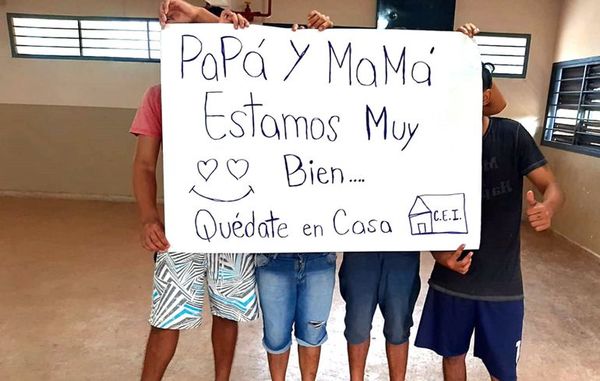 PaPá Y MaMá
Estamos Muy
Bien....
Quédate en Casa
C.E.I.